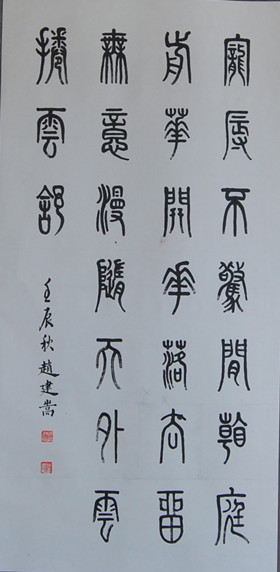 寵辱不驚閒看庭
前華開華落去留
無意漫隨天外雲
捲雲舒
壬辰秋趙建嵩